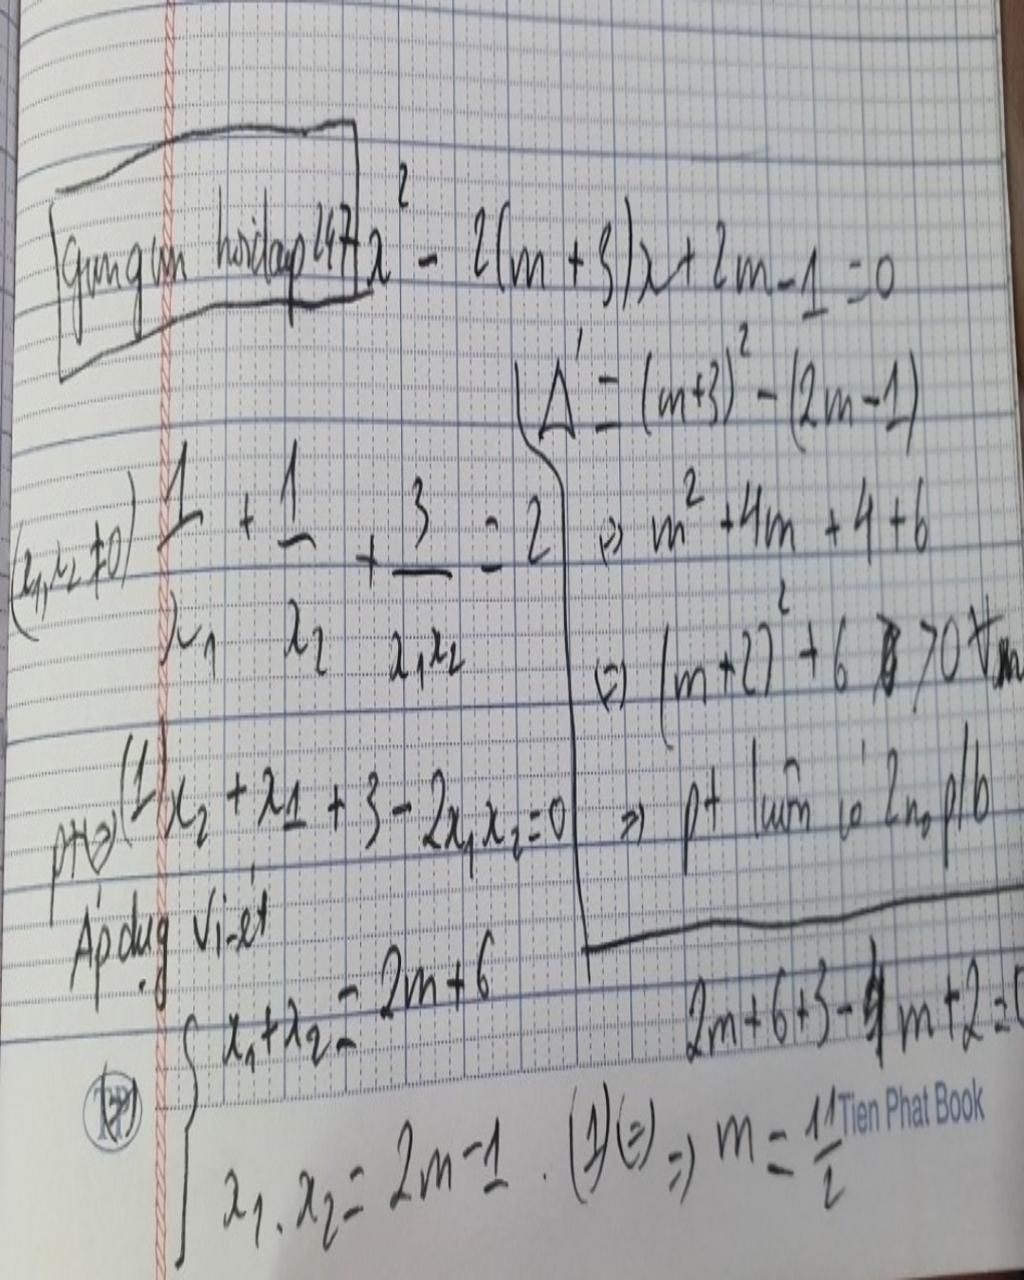 gungun hoidap247 x² - 2(m+3)x + 2m - 1 = 0
Δ' = (m+3)² - (2m-1)
(x₁,x₂ ≠ 0) 1/x₁ + 1/x₂ + 3/x₁x₂ = 2
=> m² + 4m + 4 + 6
<=> (m+2)² + 6 > 0 ∀m
=> pt luôn có 2 n₀ p/b
pt <=> (1) x₂ + x₁ + 3 - 2x₁x₂ = 0
Áp dụng Vi-ét
{ x₁ + x₂ = 2m + 6
x₁ . x₂ = 2m - 1 .
2m + 6 + 3 - 4m + 2 = 0
(1) <=> => m = 11/2
Tien Phat Book